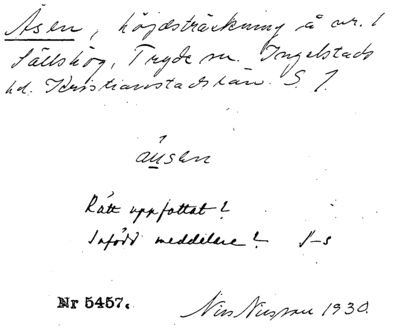 Åsen, höjdsträckning å nr. 1
Sällshög, Tryde sn. Ingelstads
hd. Kristianstads län. S. J.
áu̲sen
Rätt uppfattat?
Infödd meddelare? S-s
Nr 5457.
Nils Nilsson 1930.